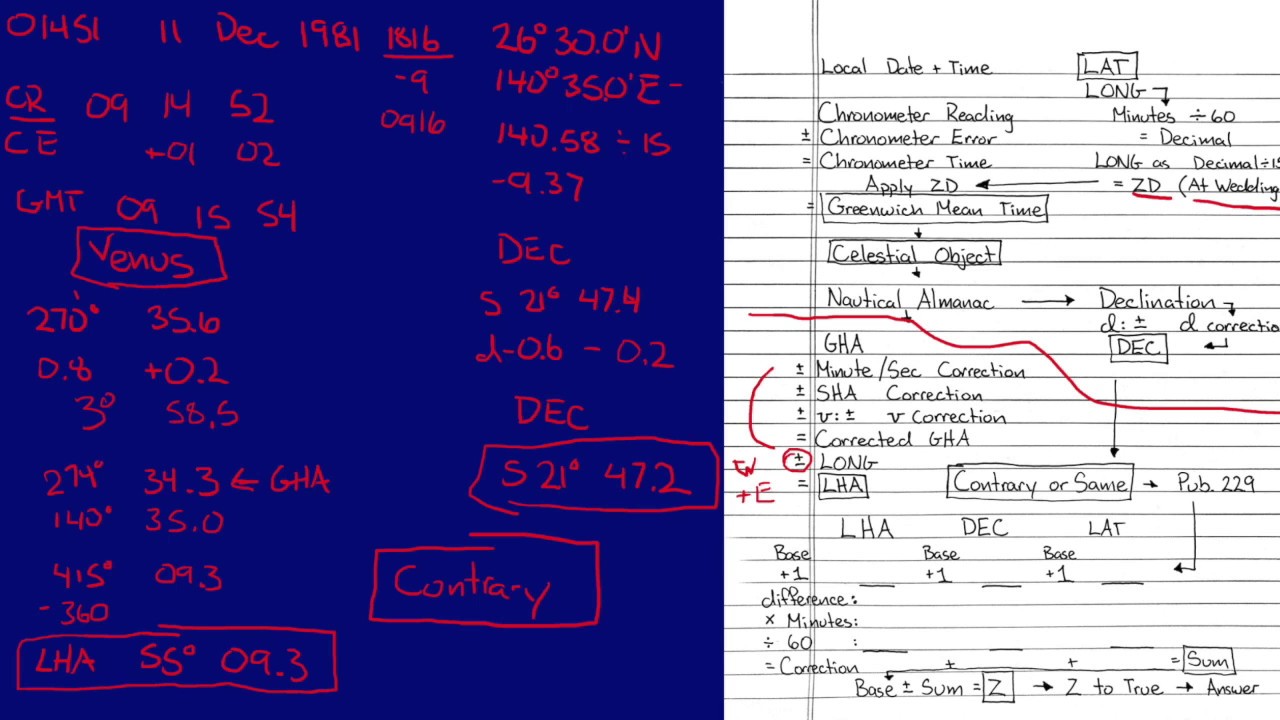 01451 11 Dec 1981 1816 26° 30.0' N
-9 140° 35.0' E -
CR 09 14 52 0916 140.58 ÷ 15
CE +01 02 -9.37
GMT 09 15 54
Venus
DEC
270° 35.6 S 21° 47.4
0.8 +0.2 d-0.6 - 0.2
3° 58.5 DEC
274° 34.3 ← GHA S 21° 47.2
140° 35.0
415° 09.3 Contrary
-360
LHA 55° 09.3
Local Date + Time LAT
LONG
Chronometer Reading Minutes ÷ 60
± Chronometer Error = Decimal
= Chronometer Time LONG as Decimal ÷ 15
Apply ZD ← = ZD (At Wedding
= Greenwich Mean Time
Celestial Object
Nautical Almanac → Declination
d: ± d correction
GHA DEC
± Minute/Sec Correction
± SHA Correction
± v: ± v Correction
= Corrected GHA
W ± LONG
+E = LHA Contrary or Same → Pub. 229
LHA DEC LAT
Base Base Base
+1 +1 +1
difference:
× Minutes:
÷ 60 :
= Correction + + = Sum
Base ± Sum = Z → Z to True → Answer